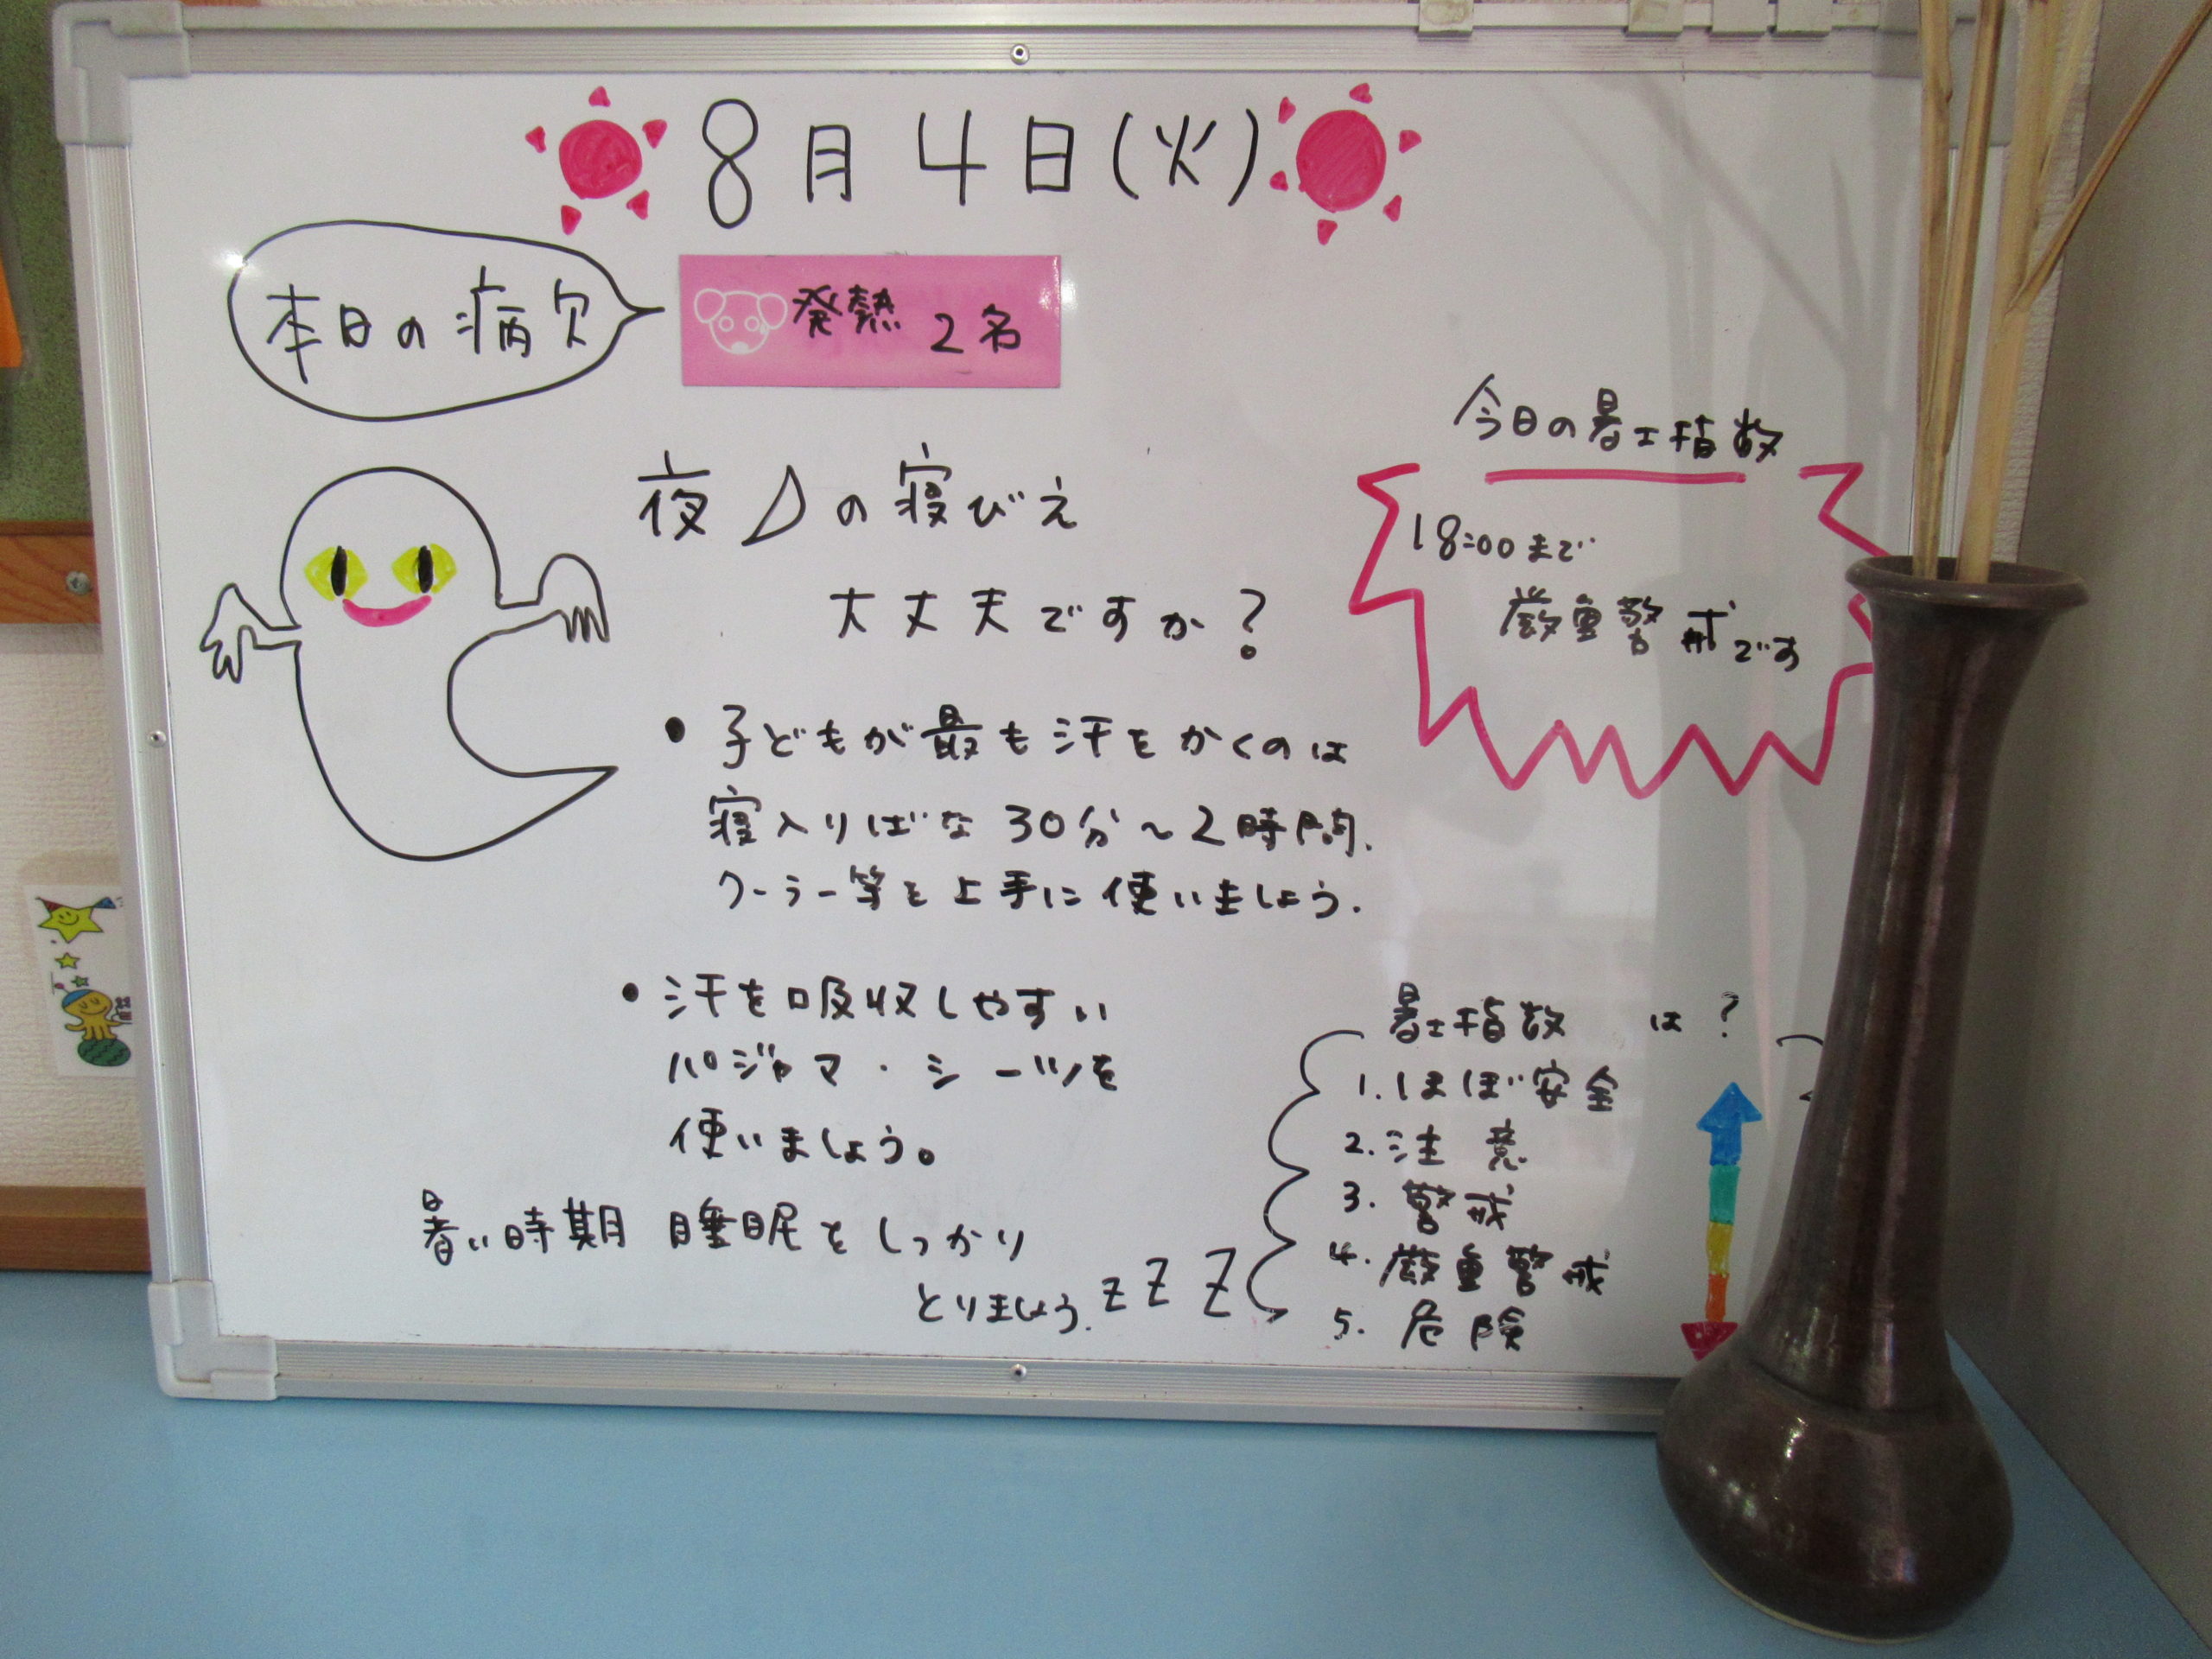 8月4日(火)
本日の病欠
発熱 2名
夜の寝びえ
大丈夫ですか?
・子どもが最も汗をかくのは
寝入りばな 30分~2時間.
クーラー等を上手に使いましょう.
・汗を吸収しやすい
パジャマ・シーツを
使いましょう。
暑い時期 睡眠をしっかり
とりましょう. zzZ
今日の暑さ指数
18:00まで
厳重警戒です
暑さ指数 は?
1.ほぼ安全
2.注意
3.警戒
4.厳重警戒
5.危険